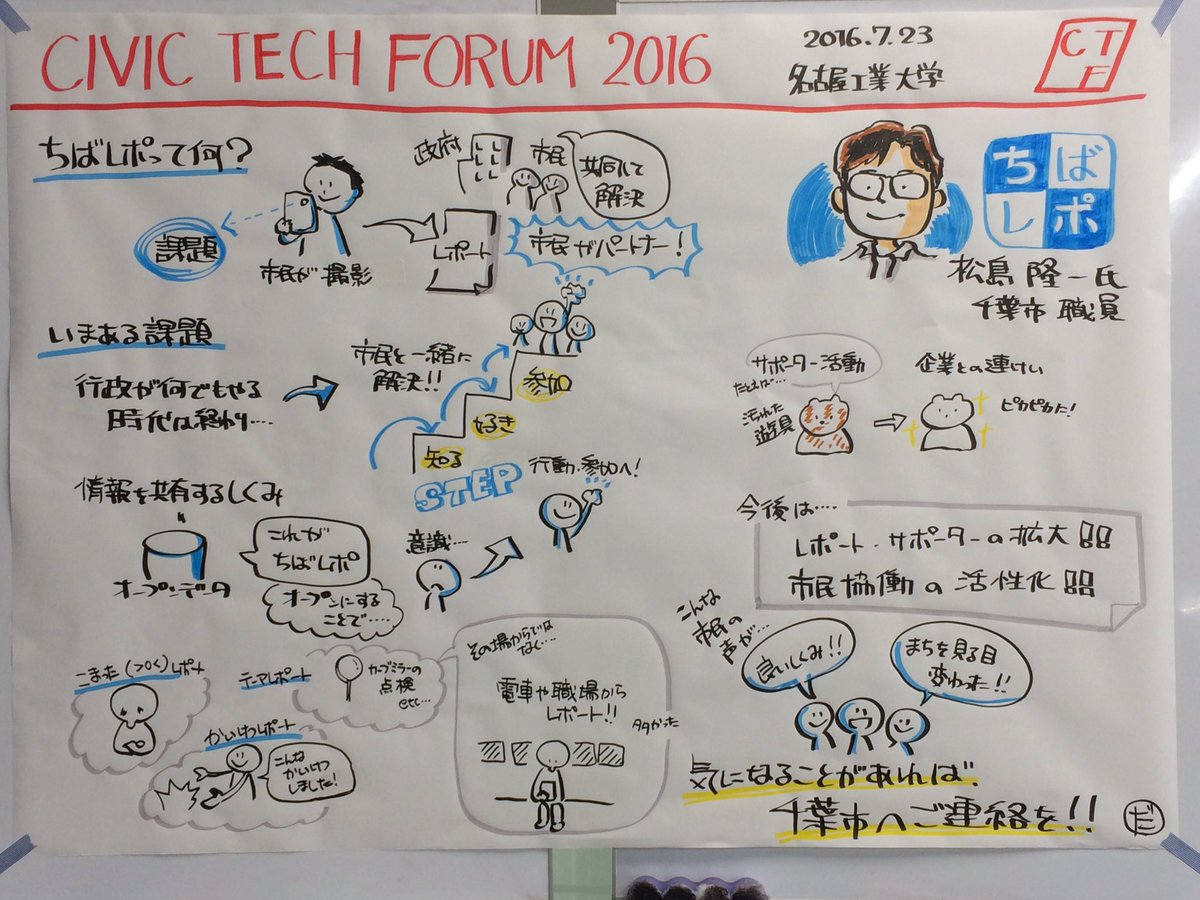 CIVIC TECH FORUM 2016
2016.7.23
名古屋工業大学
CTF
ちばレポって何?
課題
市民が撮影
レポート
政府
市民
共同して
解決
市民がパートナー!
ちば
レポ
松島 隆一氏
千葉市 職員
いまある課題
行政が何でもやる
時代は終わり....
市民と一緒に
解決!!
知る
好き
参加
STEP
サポーター活動
たとえば...
汚れた
遊具
企業との連けい
ピカピカに!
情報を共有するしくみ
オープンデータ
これが
ちばレポ
オープンにする
ことで....
意識...
行動・参加へ!
今後は....
レポート・サポーターの拡大
市民協働の活性化
こまった(>o<)レポート
テーマレポート
カーブミラーの
点検
etc...
かいけつレポート
こんな
かいけつ
しました!
その場からでは
なく....
電車や職場から
レポート!!
多かった
こんな
市民の
声が...
良いしくみ!!
まちを見る目
変わった!!
気になることがあれば
千葉市へご連絡を!!
だ